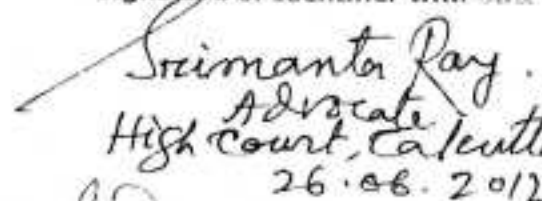 Srimanta Ray.
Advocate
High Court, Calcutt
26.06.2012